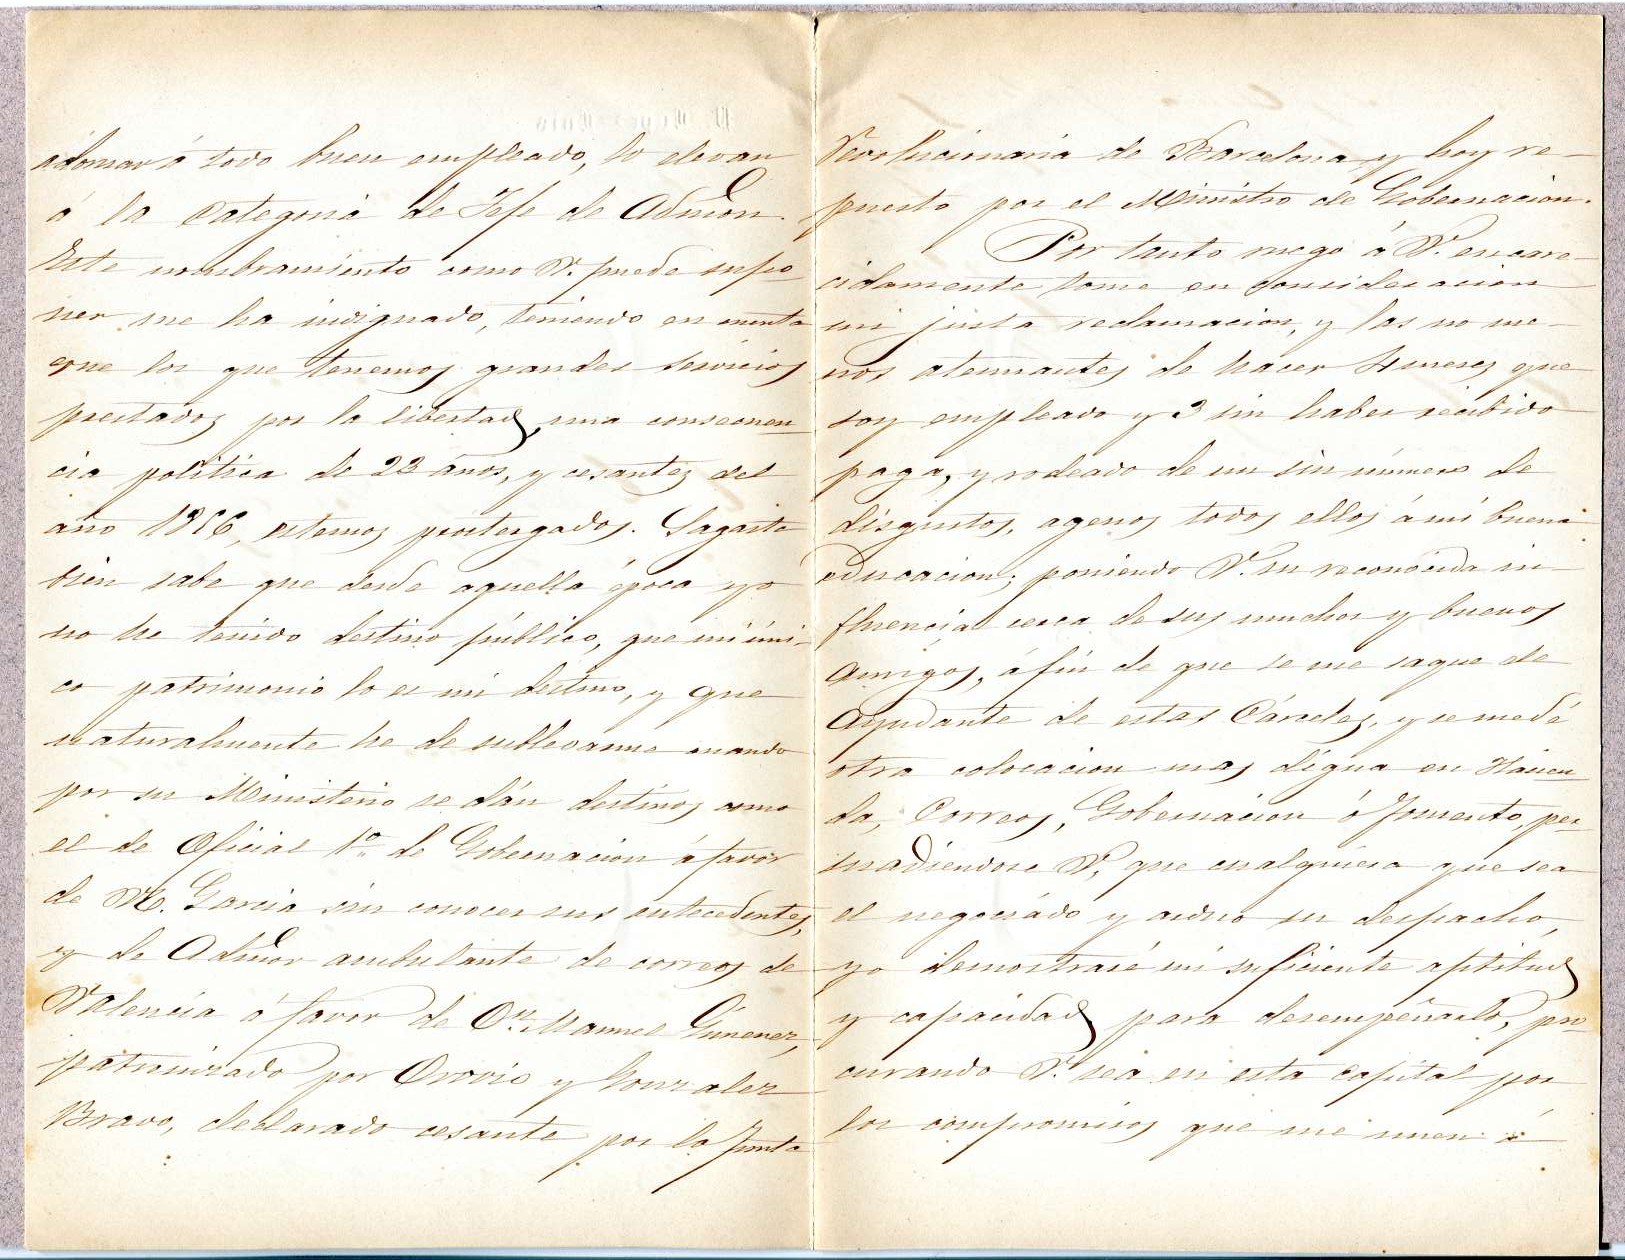 adornar á todo buen empleado, lo elevan
á la categoria de Jefe de Admon.
Este nombramiento como V. puede supo
ner me ha indignado, teniendo en cuenta
que los que tenemos grandes servicios
prestados por la libertad, una consecuen
cia politica de 23 años, y cesantes del
año 1856, estemos postergados. Sagasta
bien sabe que desde aquella época yo
no he tenido destino público, que mi úni-
co patrimonio lo es mi destino, y que
naturalmente he de sublevarme cuando
por su Ministerio se dán destinos como
el de Oficial 1º de Gobernacion á favor
de M. Garcia sin conocer sus antecedentes,
y de Admor ambulante de correos de
Valencia á favor de Dn. Manuel Gimenez,
patrocinado por Orovio y Gonzalez
Bravo, declarado cesante por la Junta
Revolucionaria de Barcelona y hoy re-
puesto por el Ministro de Gobernacion.
Por tanto ruego á V. encare-
cidamente tome en consideracion
mi justa reclamacion, y las no me-
nos atenuantes de hacer 4 meses que
soy empleado y 3 sin haber recibido
paga, y rodeado de un sin número de
disgustos, agenos todos ellos á mi buena
educacion; poniendo V. su reconocida in-
fluencia cerca de sus muchos y buenos
amigos, áfin de que se me saque de
Ayudante de estas Cárceles, y se me dé
otra colocacion mas digna en Hacien
da, Correos, Gobernacion ó Fomento, per
suadiendose V, que cualquiera que sea
el negociado y arduo su despacho,
yo demostraré mi suficiente aptitud
y capacidad para desempeñarlo, pro
curando V. sea en esta capital por
los compromisos que me unen á